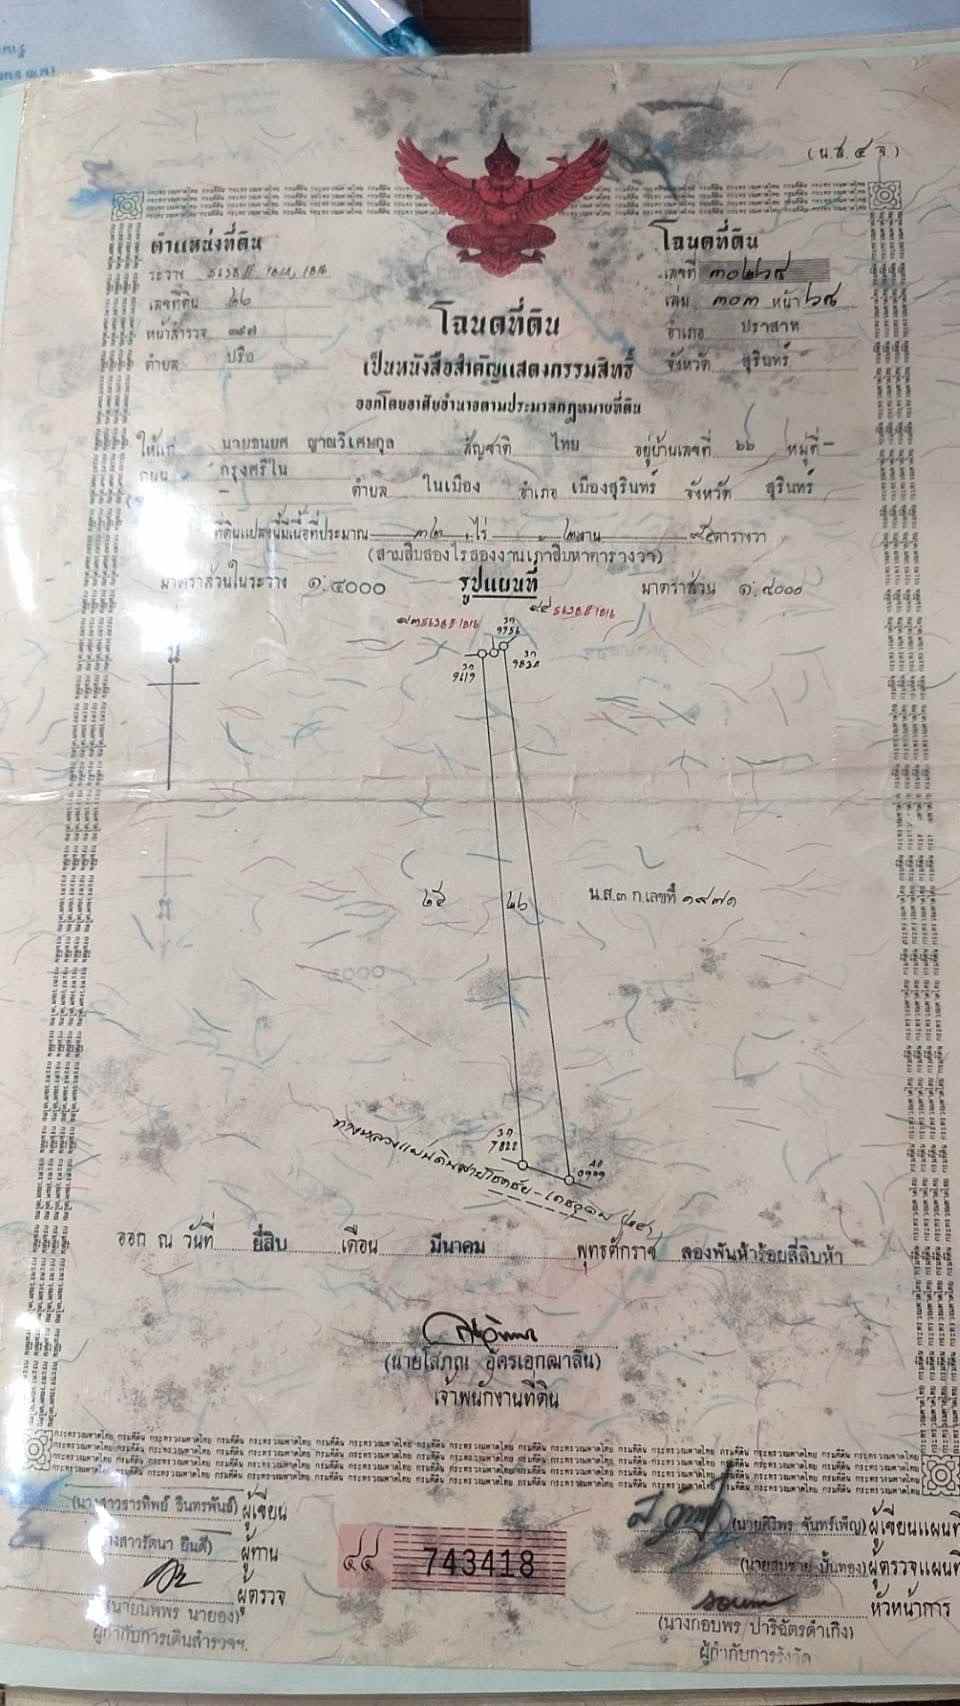 (น.ส.๔ จ)
ตำแหน่งที่ดิน
ระวาง
เลขที่ดิน ๒๖
หน้าสำรวจ ๓๙๗
ตำบล ปรือ
โฉนดที่ดิน
เลขที่ ๓๐๒๖๙
เล่ม ๓๐๓ หน้า ๖๙
อำเภอ ปราสาท
จังหวัด สุรินทร์
โฉนดที่ดิน
เป็นหนังสือสำคัญแสดงกรรมสิทธิ์
ออกโดยอาศัยอำนาจตามประมวลกฎหมายที่ดิน
ให้แก่ นายธนยศ ญาณวิเศษกุล สัญชาติ ไทย อยู่บ้านเลขที่ ๖๖ หมู่ที่ -
ถนน กรุงศรีใน ตำบล ในเมือง อำเภอ เมืองสุรินทร์ จังหวัด สุรินทร์
ที่ดินแปลงนี้มีเนื้อที่ประมาณ ๓๒ ไร่ ๒ งาน ๙๕ ตารางวา
(สามสิบสองไร่สองงานเก้าสิบห้าตารางวา)
มาตราส่วนในระวาง ๑:๔๐๐๐ รูปแผนที่ มาตราส่วน ๑:๔๐๐๐
น
๒๕ ๒๖ น.ส.๓ ก.เลขที่ ๑๙๗๑
ทางหลวงแผ่นดินสายโชคชัย-เดชอุดม
ออก ณ วันที่ ยี่สิบ เดือน มีนาคม พุทธศักราช สองพันห้าร้อยสี่สิบห้า
(นายโสภณ อัครเอกฒาลิน)
เจ้าพนักงานที่ดิน
(นางสาวธารทิพย์ อินทรพันธ์) ผู้เขียน
(นางสาวรัตนา ยินดี) ผู้ทาน
ผู้ตรวจ
(นายนพพร นายอง)
ผู้กำกับการเดินสำรวจฯ
๔๔ 743418
(นายศิริพร จันทร์เพ็ญ) ผู้เขียนแผนที่
(นายสมชาย ปั้นทอง) ผู้ตรวจแผนที่
หัวหน้าการ
(นางกอบพร ปาริฉัตรดำเกิง)
ผู้กำกับการรังวัด